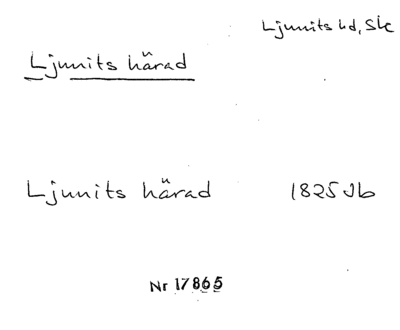 Ljunits hd, Sk
Ljunits härad
Ljunits härad 1825 Jb
Nr 17865